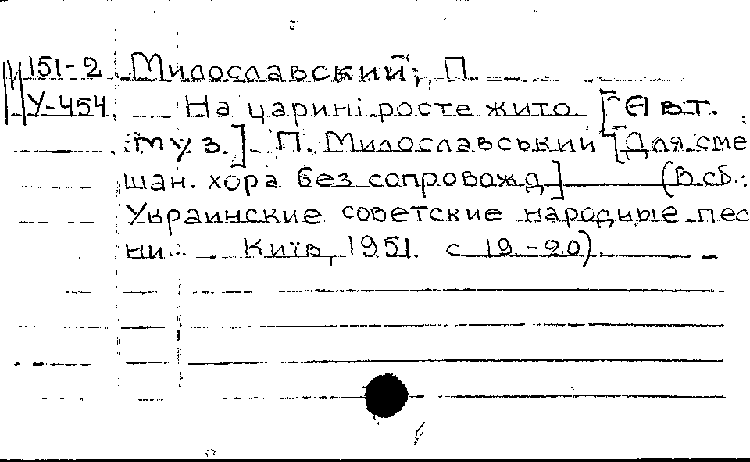 151-2 Милославский, П.
У-454. На царині росте жито [Авт.
муз.] П. Милославський [Для сме
шан. хора без сопровожд.] (В сб.:
Украинские советские народные пес
ни. Київ, 1951. с 19-20).